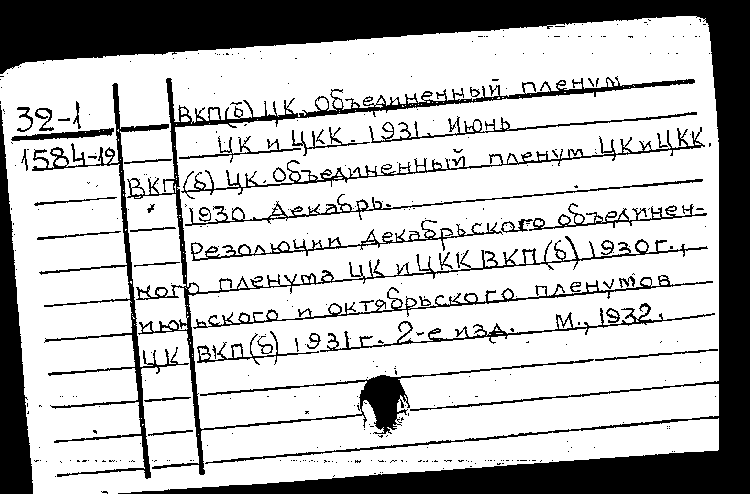 32-1
1584-19
ВКП(б) ЦК. Объединенный пленум
ЦК и ЦКК. 1931. Июнь
ВКП(б) ЦК. Объединенный пленум ЦК и ЦКК.
1930. Декабрь.
Резолюции декабрьского объединен-
ного пленума ЦК и ЦКК ВКП(б) 1930 г.,
июньского и октябрьского пленумов
ЦК ВКП(б) 1931 г. 2-е изд. М., 1932.